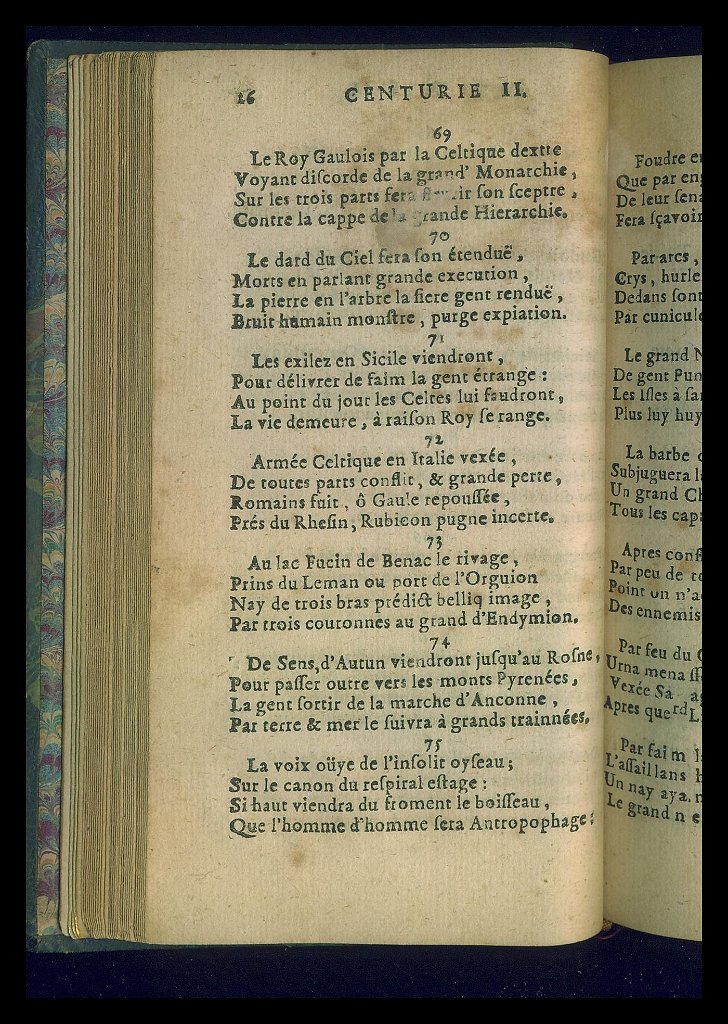 26 CENTURIE II.
69
Le Roy Gaulois par la Celtique dextre
Voyant diſcorde de la grand' Monarchie,
Sur les trois parts fera ſon ſceptre,
Contre la cappe de la grande Hierarchie.
70
Le dard du Ciel fera ſon étenduë,
Morts en parlant grande execution,
La pierre en l'arbre la fiere gent renduë,
Bruit humain monſtre, purge expiation.
71
Les exilez en Sicile viendront,
Pour délivrer de faim la gent étrange:
Au point du jour les Celtes lui faudront,
La vie demeure, à raiſon Roy ſe range.
72
Armée Celtique en Italie vexée,
De toutes parts conflit, & grande perte,
Romains fuit, ô Gaule repouſſée,
Prés du Rheſin, Rubicon pugne incerte.
73
Au lac Fucin de Benac le rivage,
Prins du Leman ou port de l'Orguion
Nay de trois bras prédict belliq image,
Par trois couronnes au grand d'Endymion.
74
De Sens, d'Autun viendront juſqu'au Roſne,
Pour paſſer outre vers les monts Pyrenées,
La gent ſortir de la marche d'Anconne,
Par terre & mer le ſuivra à grands trainnées.
75
La voix oüye de l'inſolit oyſeau;
Sur le canon du reſpiral eſtage:
Si haut viendra du froment le boiſſeau,
Que l'homme d'homme ſera Antropophage:
Foudre
Que par
De leur
Fera ſçavoir
Par arcs,
Crys,
Dedans
Par
Le grand
De gent
Les Iſles à
Plus luy
La barbe
Subjuguera
Un grand
Tous les
Apres
Par peu de
Point on
Des ennemis
Par feu du
Urna
Vexée
Apres que
Par faim
L'aſſaillans
Un nay
Le grand